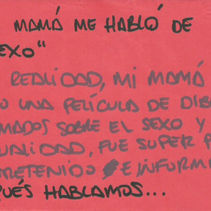 MAMÁ ME HABLÓ DE
EXO"
REALIDAD, MI MAMÁ
O UNA PELÍCULA DE DIB
MADOS SOBRE EL SEXO Y
UALIDAD, FUE SUPER
RETENIDO E INFORM
UÉS HABLAMOS...